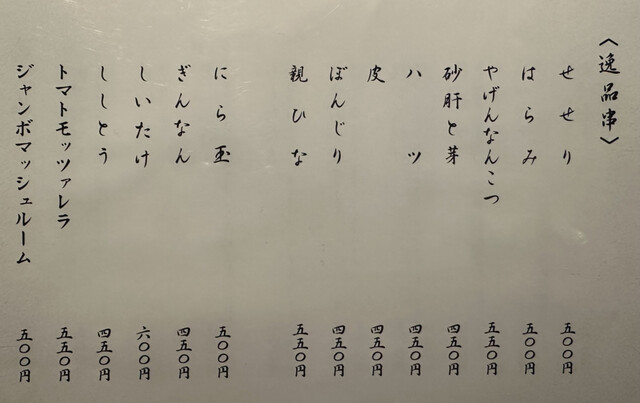 〈逸品串〉
せせり 五〇〇円
はらみ 五〇〇円
やげんなんこつ 五五〇円
砂肝と芽 四五〇円
ハツ 四五〇円
皮 四五〇円
ぼんじり 四五〇円
親ひな 五五〇円
にら玉 五〇〇円
ぎんなん 四五〇円
しいたけ 六〇〇円
ししとう 四五〇円
トマトモッツァレラ 五五〇円
ジャンボマッシュルーム 五〇〇円